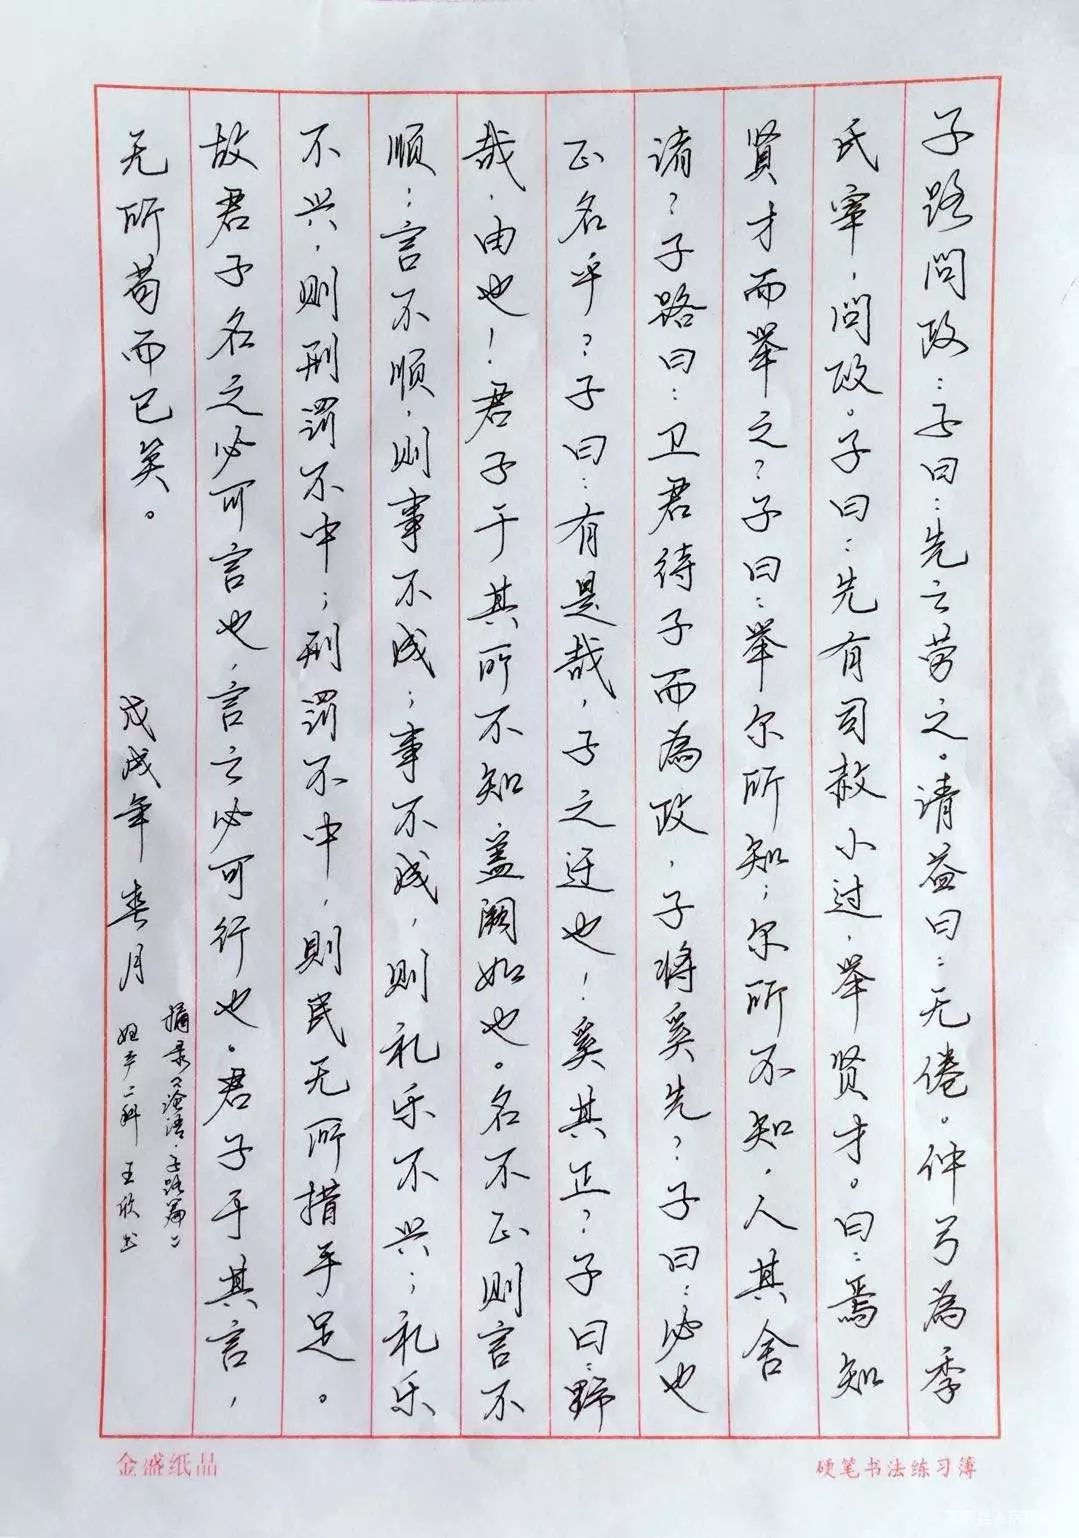 子路問政：子曰：先之劳之。请益曰：无倦。仲弓為季
氏宰，問政。子曰：先有司赦小过，举贤才。曰：焉知
贤才而举之？子曰：举尔所知；尔所不知，人其舍
诸？子路曰：卫君待子而為政，子将奚先？子曰：必也
正名乎？子曰：有是哉，子之迂也！奚其正？子曰：野
哉，由也！君子于其所不知盖阙如也。名不正则言不
顺：言不顺，则事不成；事不成，则礼乐不兴；礼乐
不兴，则刑罚不中；刑罚不中，則民无所措手足。
故君子名之必可言也，言之必可行也。君子于其言，
无所苟而已矣。
戊戌年 春月
摘录《论语·子路篇》
妞子二科 王欣书
金盛纸品
硬笔书法练习簿